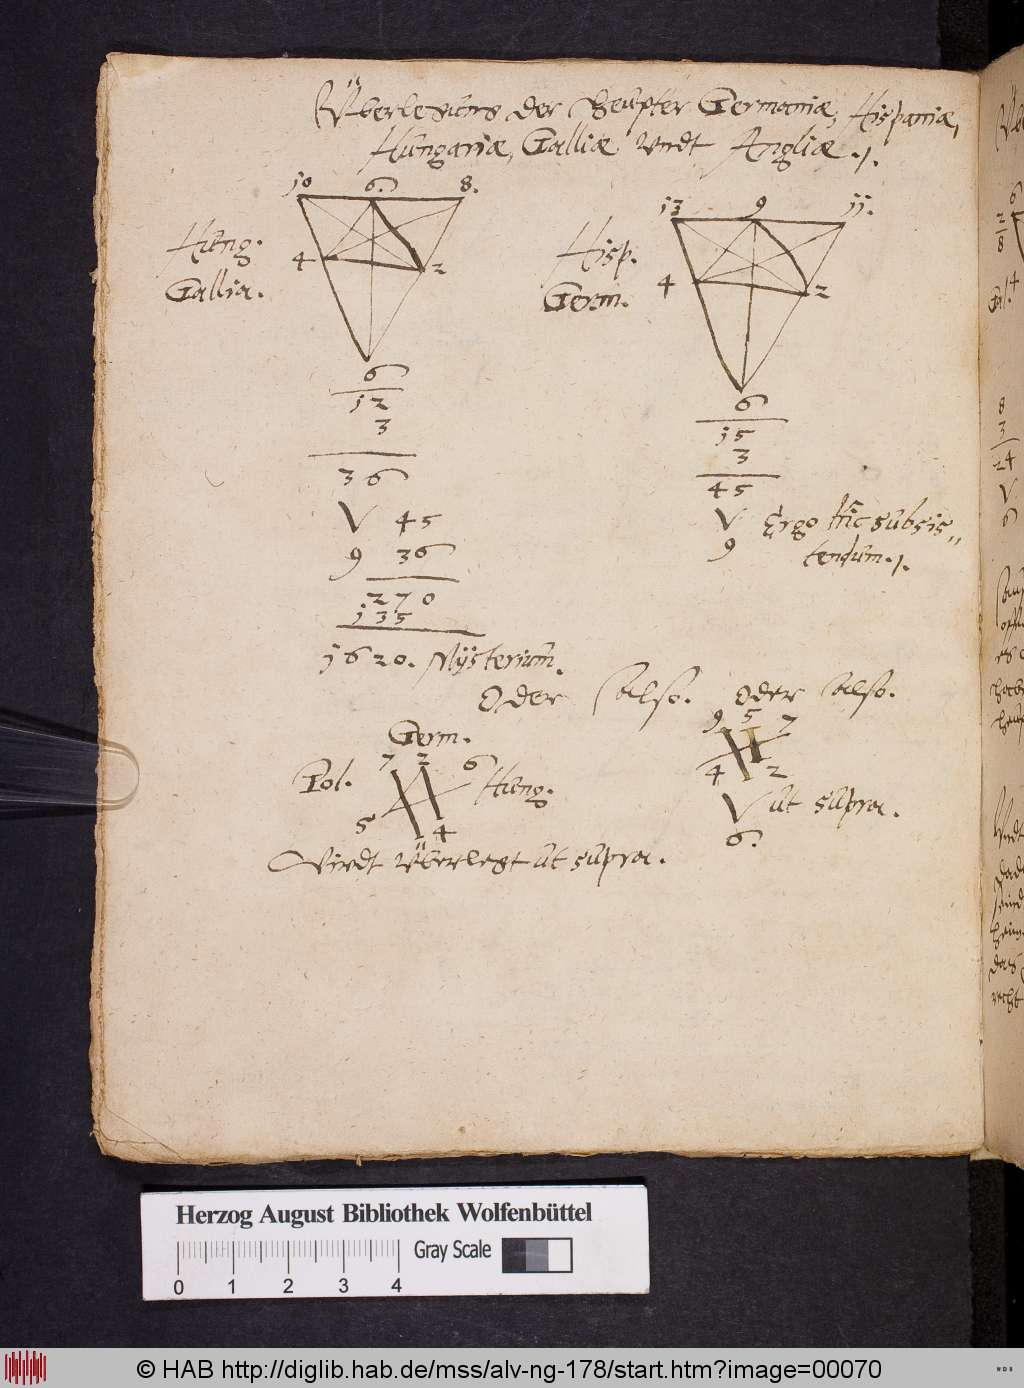 Überlegung der Heupter Germaniæ, Hispaniæ,
Hungariæ, Galliæ Vndt Angliæ ./.
10 6. 8.
Hung.
Gallia.
4 2
6
12
3
36
V 45
9 36
270
135
1620. Mÿsterium.
13 9 11.
Hisp.
Germ.
4 2
6
15
3
45
V Ergo hîc subsis„
9 tendum ./.
Oder also.
Germ.
Pol. 7 2 6 Hung.
5 4
Wirdt Überlegt ut supra.
Oder also.
9 5 7
4 2
V ut supra.
6.
6
2
8
4
8
3
24
V
6
Herzog August Bibliothek Wolfenbüttel
Gray Scale
0 1 2 3 4
© HAB http://diglib.hab.de/mss/alv-ng-178/start.htm?image=00070